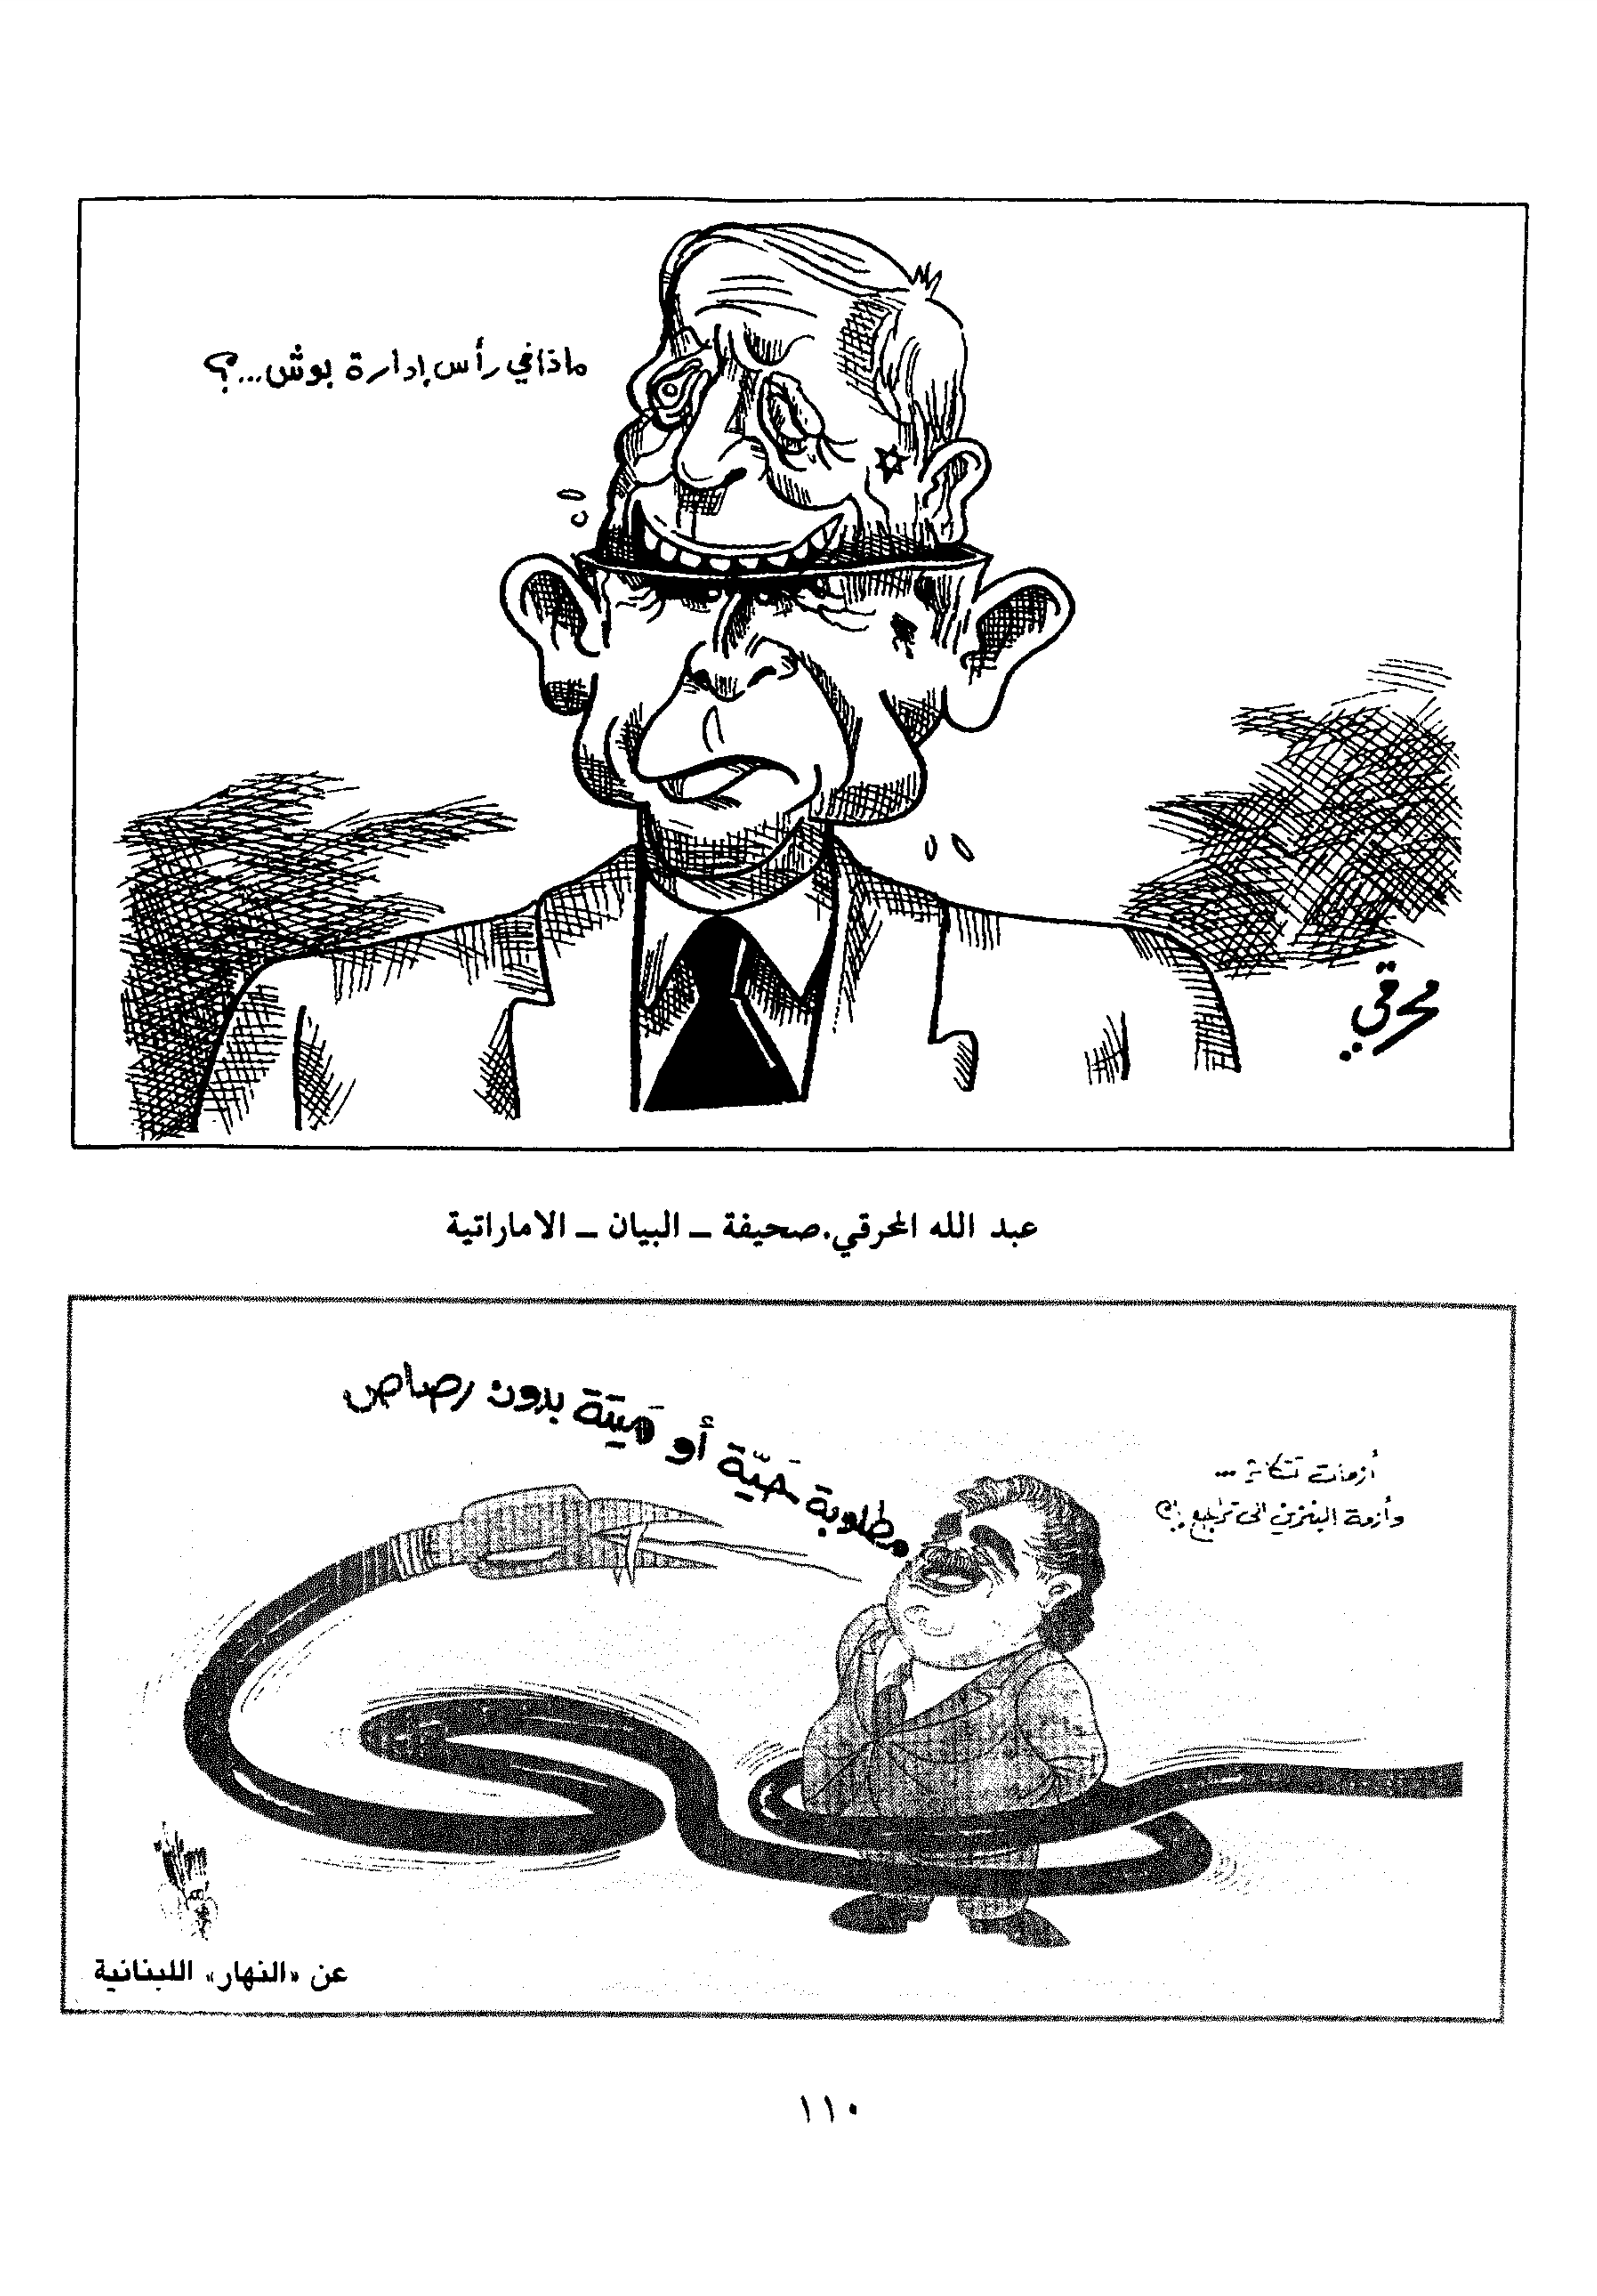 ماذا في رأس إدارة بوش...؟
محرقي
عبد الله المحرقي.صحيفة ــ البيان ــ الاماراتية
مطلوبة حَيّة أو مَيتة بدون رصاص
أزمات تتكاثر ...
وأزمة البنزين الى تراجع
عن «النهار» اللبنانية
١١٠